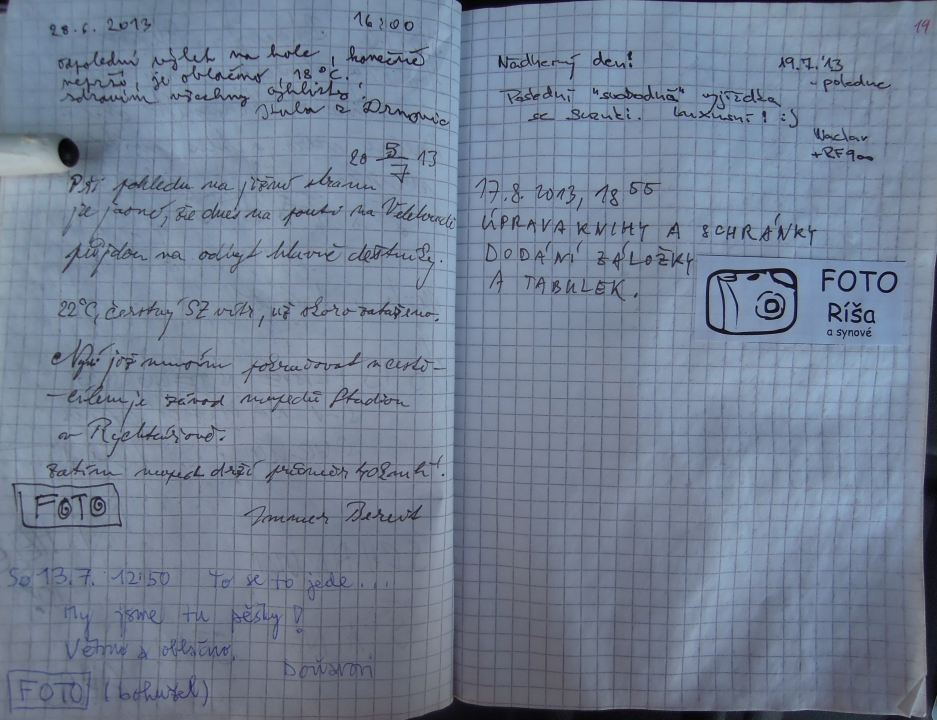 28.6.2013 16:00
odpolední výlet na kole, konečně
neprší, je oblačno, 18°C.
zdravím všechny
z Drnovic
20 5/7 13
Při pohledu na jižní stranu
je jasné, že dnes na pouti na Velehradě
půjdou na odbyt hlavně deštníky.
22°C, čerstvý SZ vítr, už skoro zataženo.
Nyní již musím pokračovat v cestě –
– cílem je závod mopedů Stadion
v Rychtářově.
Zatím moped drží průměr
FOTO
So 13.7. 12:50 To se to jede...
My jsme tu pěšky!
Větrno a oblačno.
FOTO (bohužel)
19
Nádherný den! 19.7.'13
- poledne
Poslední "svobodná" vyjížďka
se Suzuki. Luxusní! :)
Waclav
+RF900
17.8.2013, 18 55
ÚPRAVA KNIHY A SCHRÁNKY
DODÁNÍ ZÁLOŽKY
A TABULEK.
FOTO
Ríša
a synové